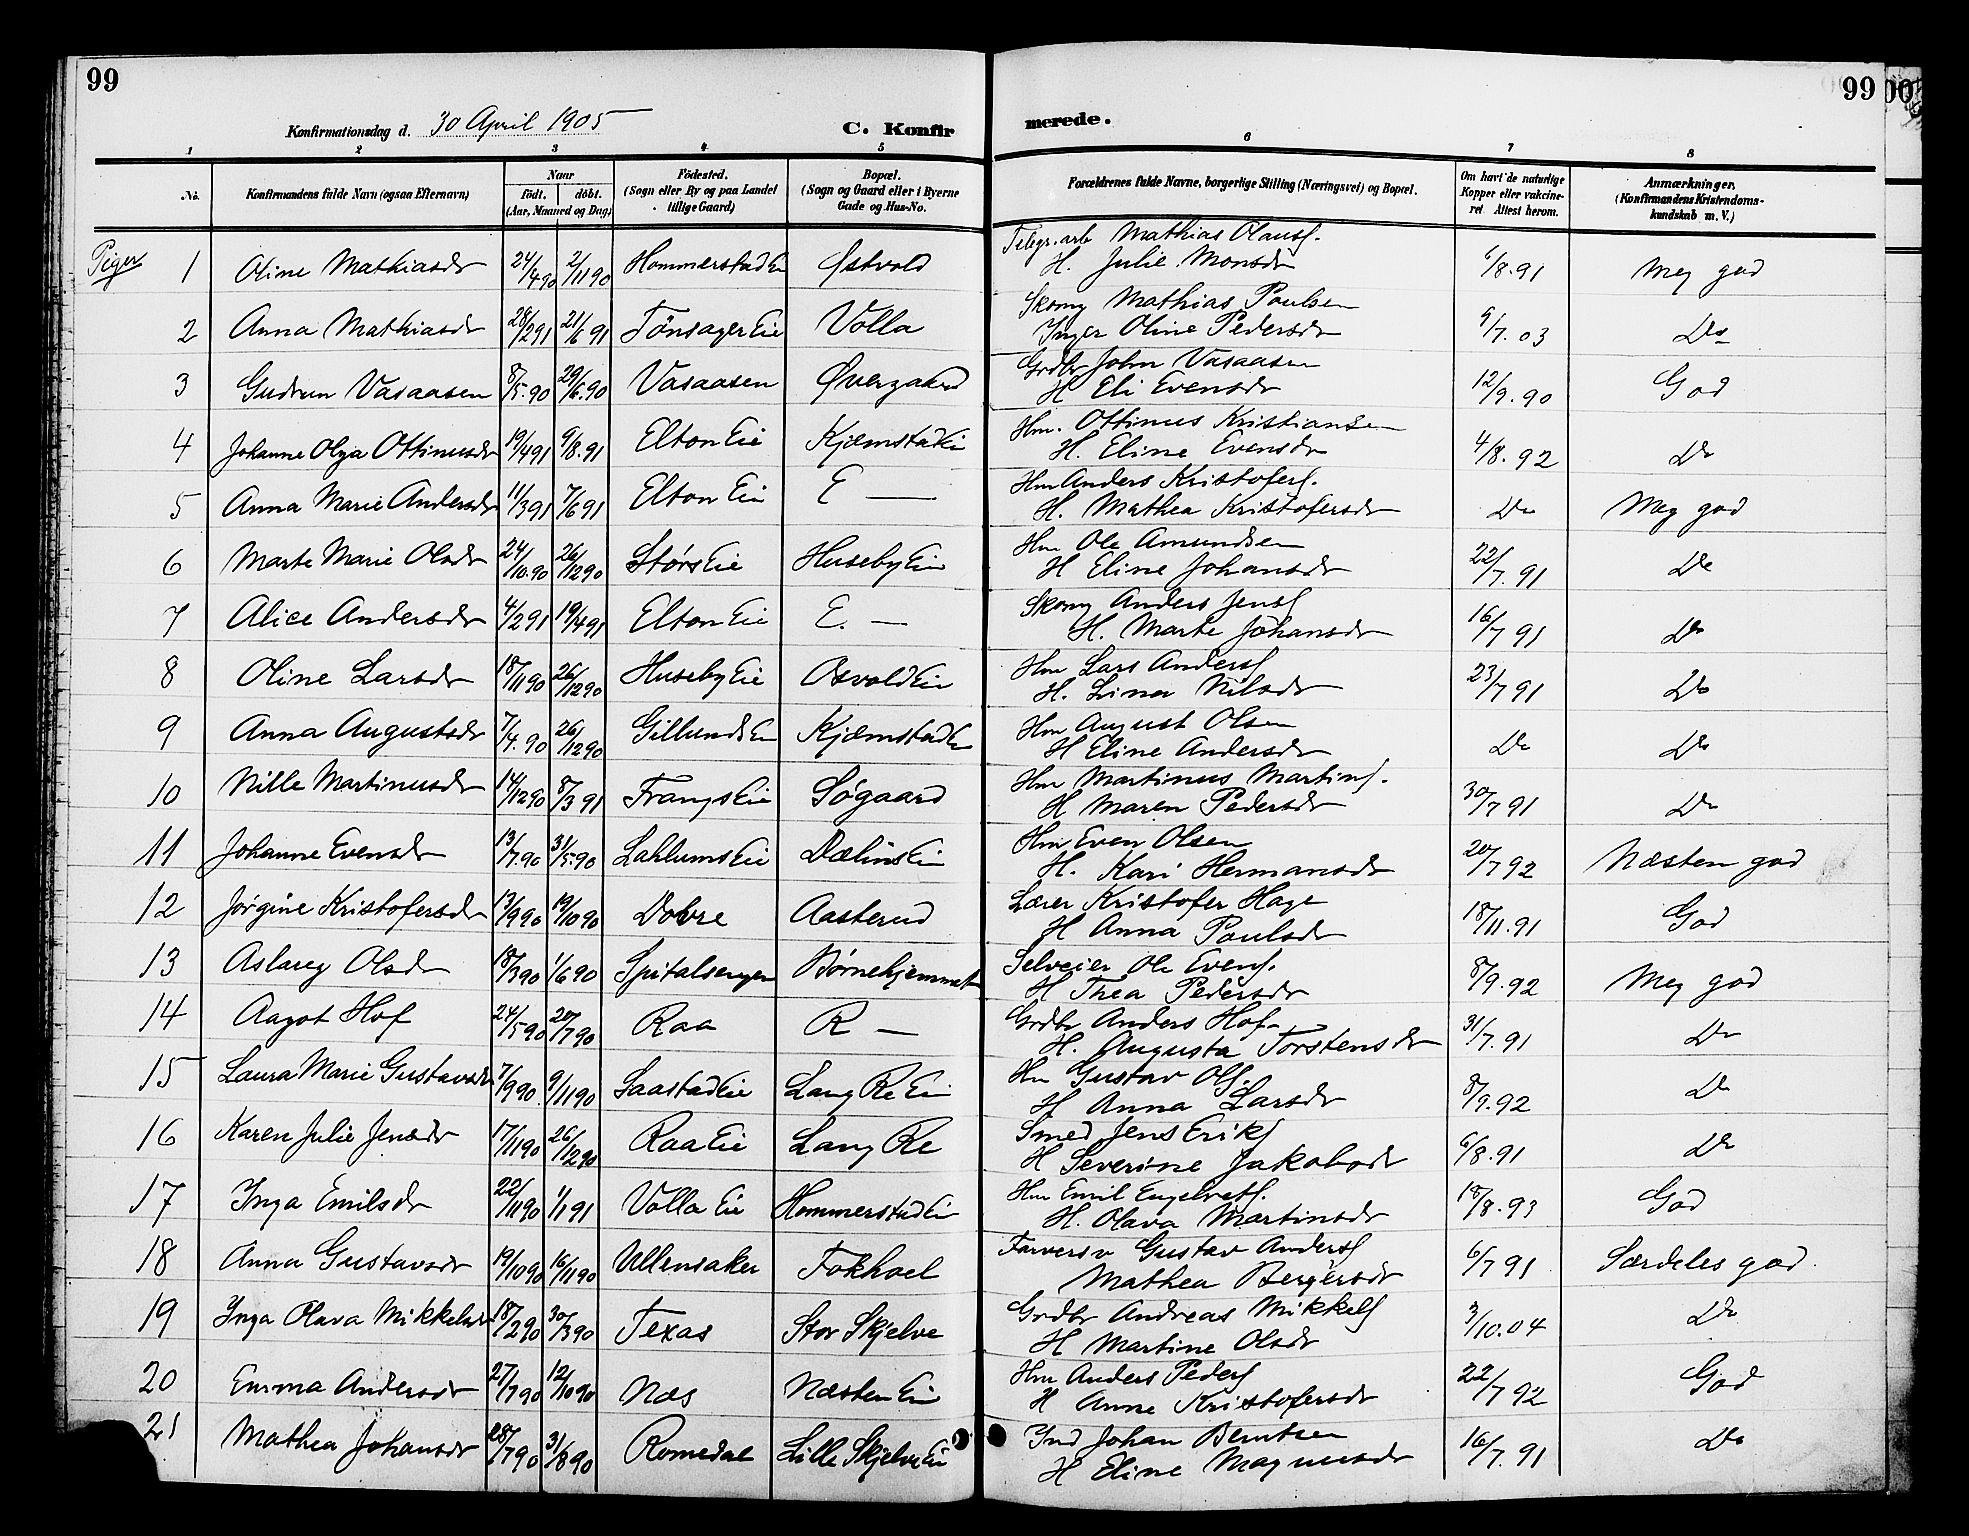 99
99
Konfirmationsdag d. 30 April 1905
C. Konfirmerede.
1 2 3 4 5 6 7 8
No. Konfirmandens fulde Navn (ogsaa Efternavn) Naar født. døbt. (Aar, Maaned og Dag) Fødested. (Sogn eller By og paa Landet tillige Gaard) Bopæl. (Sogn og Gaard eller i Byerne Gade og Hus-No. Forældrenes fulde Navne, borgerlige Stilling (Næringsvei) og Bopæl. Om havt de naturlige Kopper eller vakcineret Attest herom. Anmærkninger. (Konfirmandens Kristendomskundskab m. V.)
Piger
1 Oline Mathiasdr 24/4 90 2/11 90 HommerstadEie Østvold Telegr.arb Mathias Olauss. H. Julie Monsdr 6/8.91 Meg god
2 Anna Mathiasdr 28/2 91 21/6 91 TønsagerEie Volla Skomg Mathias Paulsen Inger Oline Pedersdr 9/7.03 Do
3 Gudrun Vasaasen 8/5.90 29/6.90 Vasaasen Øvergaard Grdbr John Vasaasen H Eli Evensdr 12/9.90 God
4 Johanne Olga Ottinusdr 19/4 91 9/8.91 Elton Eie KjæmstadEie Hm. Ottinus Kristiansen H. Eline Evensdr 4/8.92 Do
5 Anna Marie Andersdr 11/3 91 7/6 91 Elton Eie E — Hm Anders Kristofers. H. Mathea Kristofersdr Do Meg god
6 Marte Marie Olsdr 24/10.90 26/12 90 StørsEie HusebyEie Hm Ole Amundsen H Eline Johansdr 22/7.91 Do
7 Alice Andersdr 4/2 91 19/4 91 Elton Eie E. — Skomg Anders Jenss H. Marte Johansdr 16/7 91 Do
8 Oline Larsdr 18/11 90 26/12 90 HusebyEie OsvoldEie Hm Lars Anderss H. Lina Nilsdr 23/7 91 Do
9 Anna Augustsdr 7/4.90 26/12 90 GillundsEie KjæmstadEie Hm August Olsen H Eline Andersdr Do Do
10 Nille Martinusdr 14/12 90 8/3 91 FrangsEie Søgaard Hm Martinus Martins. H Maren Pedersdr 30/7 91 Do
11 Johanne Evensdr 13/7.90 31/5.90 LahlumsEie DælinsEie Hm Even Olsen H. Kari Hermansdr 20/7 92 Næsten god
12 Jørgine Kristofersdr 13/9 90 19/10 90 Dovre Aasterud Lærer Kristofer Hage H Anna Paulsdr 18/11.91 God
13 Aslaug Olsdr 18/3 90 1/6 90 Spitalsengen Børnehjemmet Selveier Ole Evens. H Thea Pedersdr 8/9.92 Meg god
14 Aagot Hof 24/5 90 20/7 90 Raa R — Grdbr Anders Hof H. Augusta Torstensdr 31/7.91 Do
15 Laura Marie Gustavsdr 7/9 90. 9/11 90 SaastadEie Lang Re Eie Hm Gustav Ols. H Anna Larsdr 8/9.92 Do
16 Karen Julie Jensdr 17/11 90 26/12 90 RaaEie Lang Re Smed Jens Eriks H Severine Jakobsdr 6/8.91 Do
17 Inga Emilsdr 22/11 90 1/1 91 Volla Eie HommerstadEie Hm Emil Engelvets. H. Olava Martinsdr 18/8.93 God
18 Anna Gustavsdr 19/10 90 16/11 90 Ullensaker Fokhoel Farversv Gustav Anderss Mathea Bergersdr 6/7 91 Særdeles god.
19 Inga Olava Mikkelsdr 18/2 90 30/3 90 Texas Stor Skjelve Grdbr Andreas Mikkels H Martine Olsdr 3/10.04 Do
20 Emma Andersdr 27/7 90 12/10 90 Næs NæstenEie Hm Anders Peders H Anne Kristofersdr 22/7 92 God
21 Mathea Johansdr 28/7 90 31/8 90 Romedal Lille SkjelveEie Ind Johan Berntsen H Eline Magnusdr 16/7.91 Do